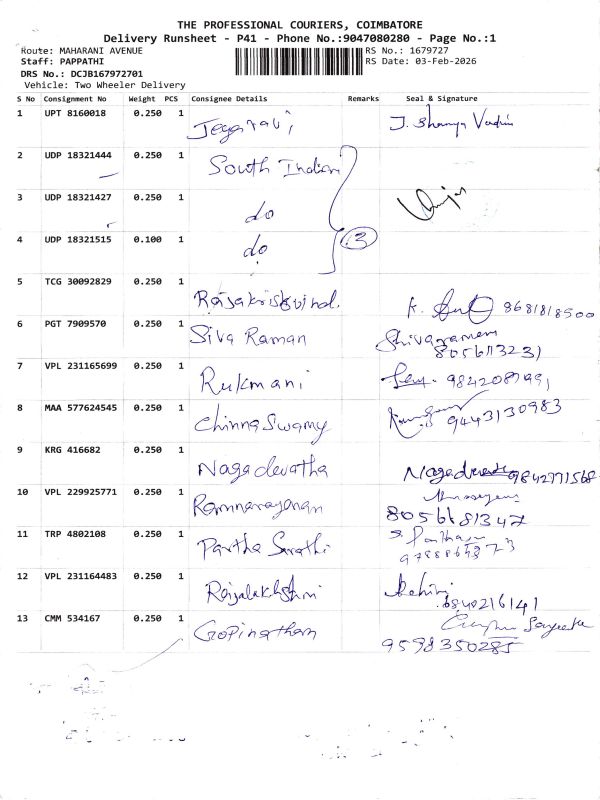 THE PROFESSIONAL COURIERS, COIMBATORE
Delivery Runsheet - P41 - Phone No.:9047080280 - Page No.:1
Route: MAHARANI AVENUE RS No.: 1679727
Staff: PAPPATHI RS Date: 03-Feb-2026
DRS No.: DCJB167972701
Vehicle: Two Wheeler Delivery
S No Consignment No Weight PCS Consignee Details Remarks Seal & Signature
1 UPT 8160018 0.250 1 Jegaravi J. Bhamya
2 UDP 18321444 0.250 1 South Indian
3 UDP 18321427 0.250 1 do
4 UDP 18321515 0.100 1 do 3
5 TCG 30092829 0.250 1 K. 8681818500
6 PGT 7909570 0.250 1 Siva Raman Shivaraman
8056113231
7 VPL 231165699 0.250 1 Rukmani
8 MAA 577624545 0.250 1 Chinnaswamy 9443130983
9 KRG 416682 0.250 1 Nagadevatha 9842771568
10 VPL 229925771 0.250 1 Ramnarayanan
8056681347
11 TRP 4802108 0.250 1 Partha Sarathi
12 VPL 231164483 0.250 1 Rajalakshmi
6840216141
13 CMM 534167 0.250 1 Gopinatham
9598350285